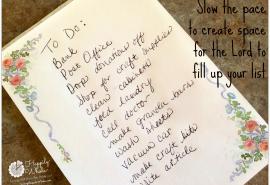 To Do:
Bank
Post Office
Drop donations off
Shop for craft supplies
clean cabinets
fold laundry
call doctor
make granola bars
wash sheets
vacuum car
make craft kits
write article
Slow the pace
to create space
for the Lord to
fill up your list